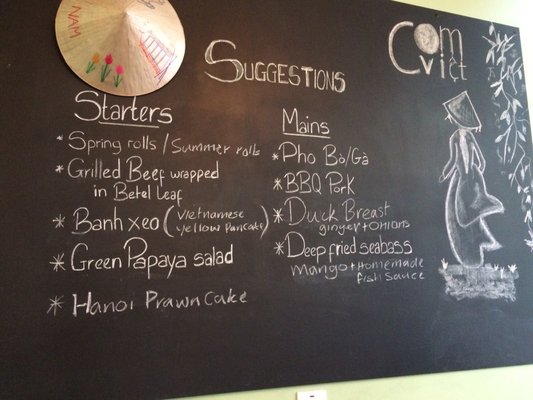 NAM
Com
Việt
Suggestions
Starters
* Spring rolls / Summer rolls
* Grilled Beef wrapped
in Betel Leaf
* Banh xeo (Vietnamese
yellow Pancake)
* Green Papaya salad
* Hanoi Prawn Cake
Mains
* Pho Bò/Gà
* BBQ Pork
* Duck Breast
ginger + onions
* Deep fried seabass
Mango + Homemade
fish Sauce